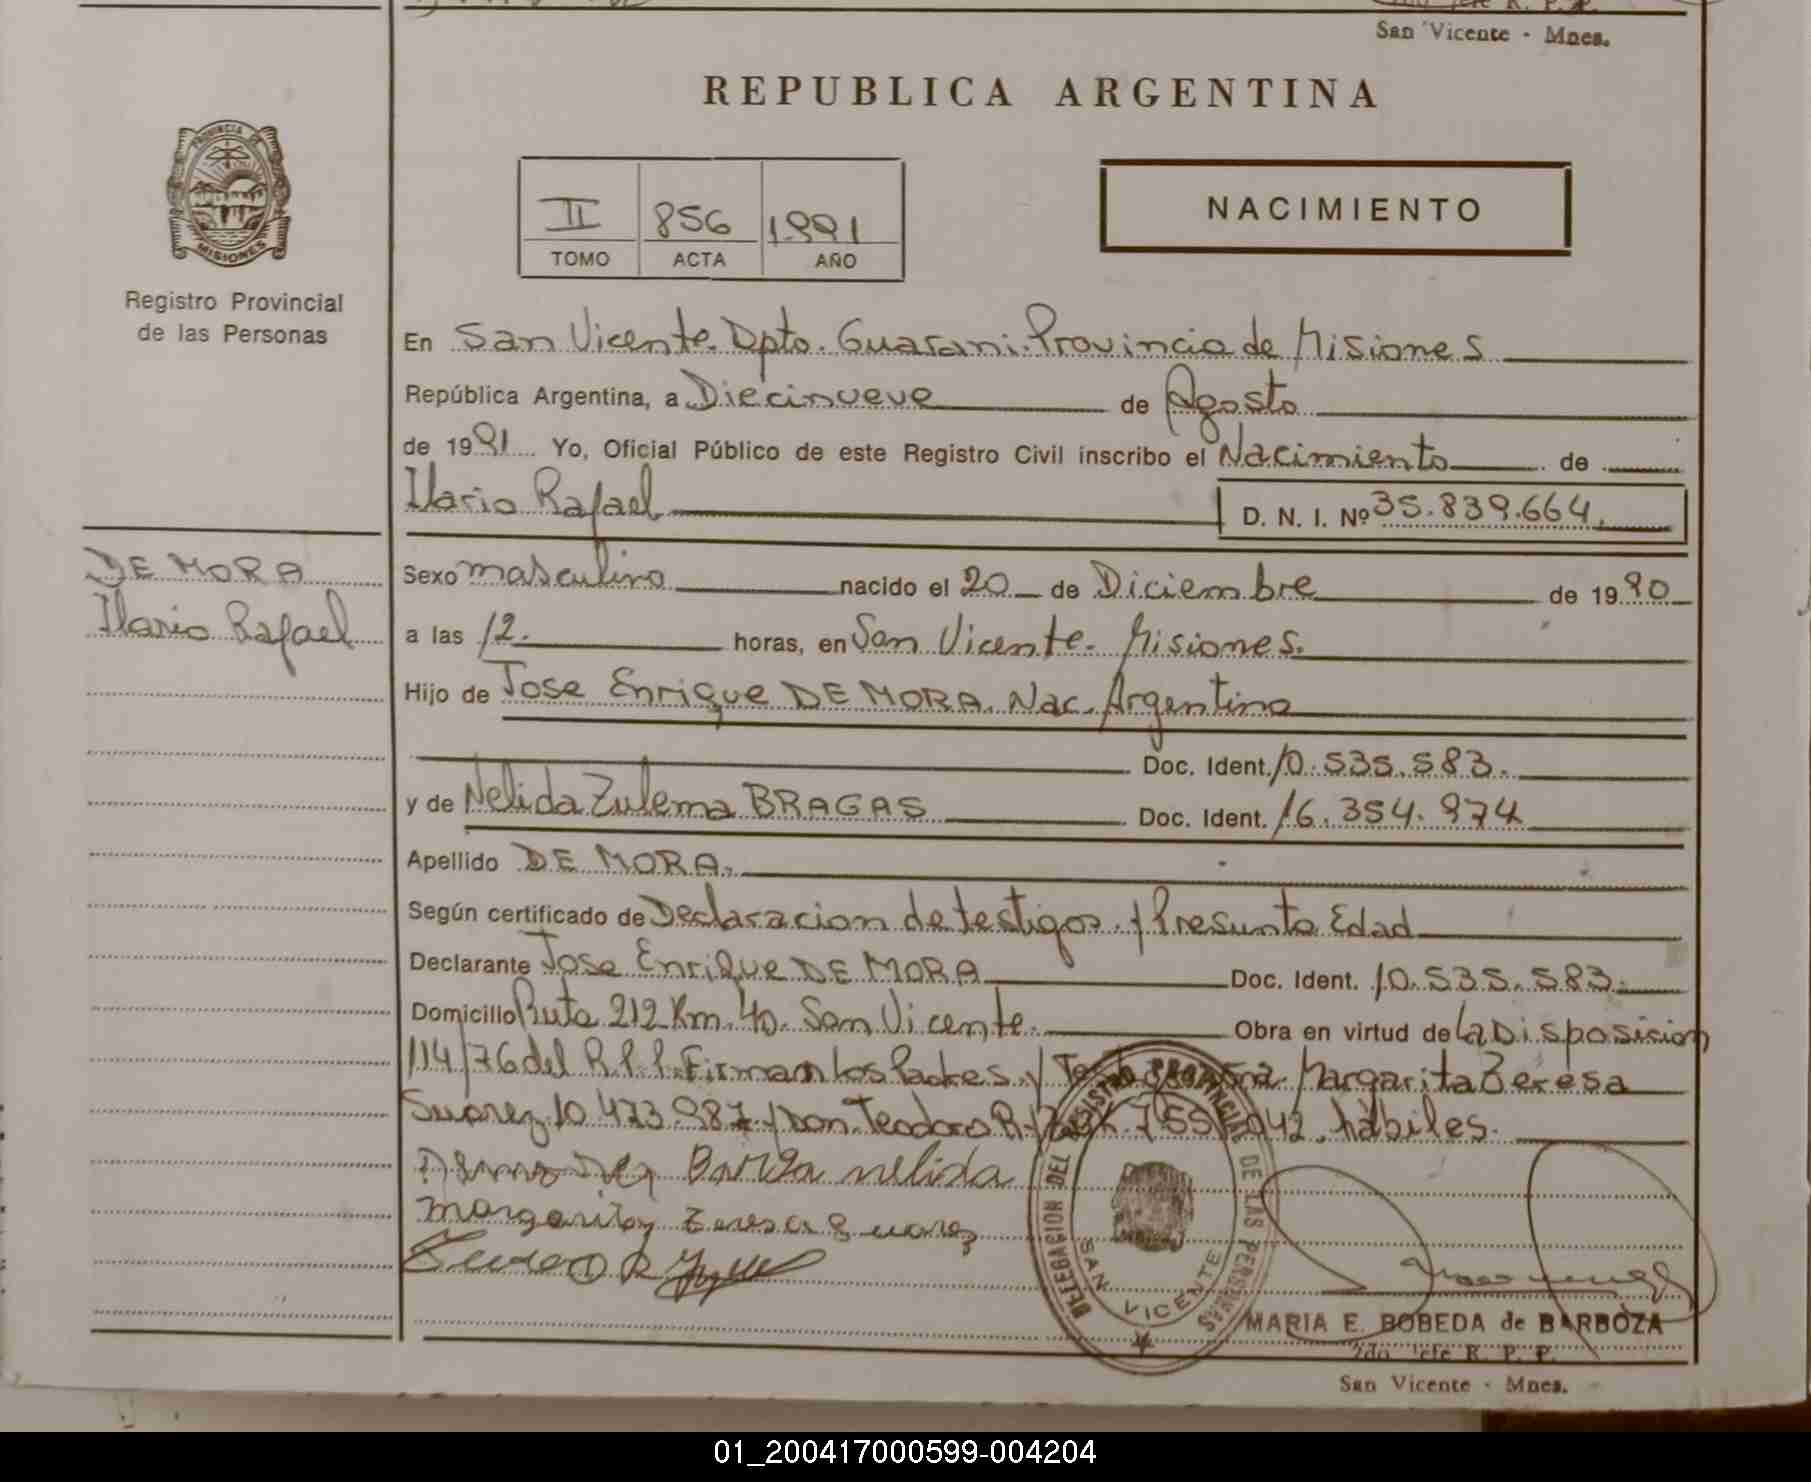 San Vicente - Mnes.
REPUBLICA ARGENTINA
PROVINCIA DE
MISIONES
Registro Provincial
de las Personas
II 856 1991
TOMO ACTA AÑO
NACIMIENTO
En San Vicente. Dpto. Guarani. Provincia de Misiones
República Argentina, a Diecinueve de Agosto
de 1991 Yo, Oficial Público de este Registro Civil inscribo el Nacimiento de
Ilario Rafael D. N. I. Nº 35.839.664.
DE MORA
Ilario Rafael
Sexo masculino nacido el 20 de Diciembre de 1990
a las 12. horas, en San Vicente. Misiones.
Hijo de Jose Enrique DE MORA. Nac. Argentina
Doc. Ident. 10.535.583.
y de Nelida Zulema BRAGAS Doc. Ident. 16.354.974
Apellido DE MORA.
Según certificado de Declaracion de testigos. y Presunta Edad
Declarante Jose Enrique DE MORA Doc. Ident. 10.535.583.
Domicilio Ruta 212 Km. 40. San Vicente. Obra en virtud de la Disposision
114/76 del R.P.P. Firman los Padres. y Margarita Teresa
Suarez 10.473.987. y Don. Teodoro R. 042. habiles.
nelida
margarita teresa Suarez
DELEGACION DEL REGISTRO PROVINCIAL DE LAS PERSONAS
SAN VICENTE
MARIA E. BOBEDA de BARBOZA
2do. Jefe R. P. P.
San Vicente - Mnes.
01_200417000599-004204